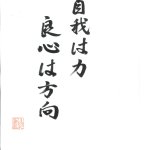 自我は力
良心は方向